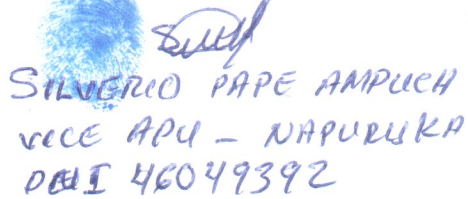 SILVERIO PAPE AMPUCH
VICE APU - NAPURUKA
DNI 46049392